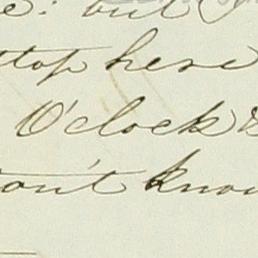 e: but I
stop here
O'clock &
don't know